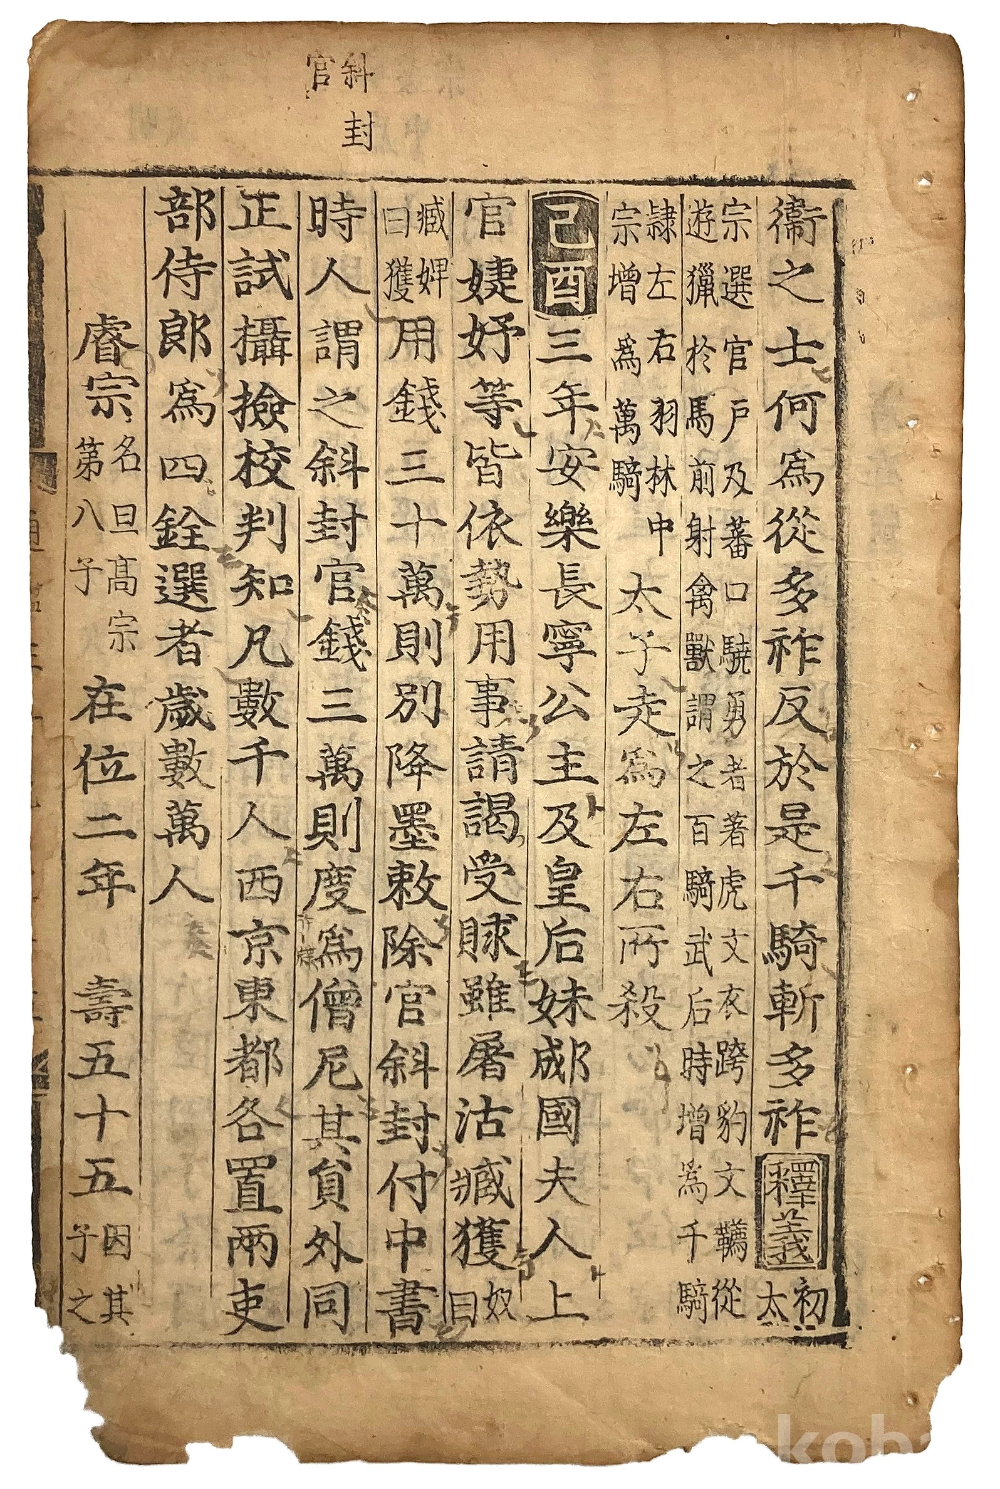 斜封
官
衞之士何爲從多祚反於是千騎斬多祚釋義初太
宗選官戶及蕃口驍勇者著虎文衣跨豹文韉從
遊獵於馬前射禽獸謂之百騎武后時增爲千騎
隷左右羽林中宗增爲萬騎太子走爲左右所殺
己酉三年安樂長寧公主及皇后妹郕國夫人上
官婕妤等皆依勢用事請謁受賕雖屠沽臧獲奴目
臧婢曰獲用錢三十萬則別降墨敕除官斜封付中書
時人謂之斜封官錢三萬則度爲僧尼其貟外同
正試攝撿校判知凡數千人西京東都各置兩吏
部侍郎爲四銓選者歲數萬人
睿宗名旦高宗第八子在位二年 壽五十五因其子之